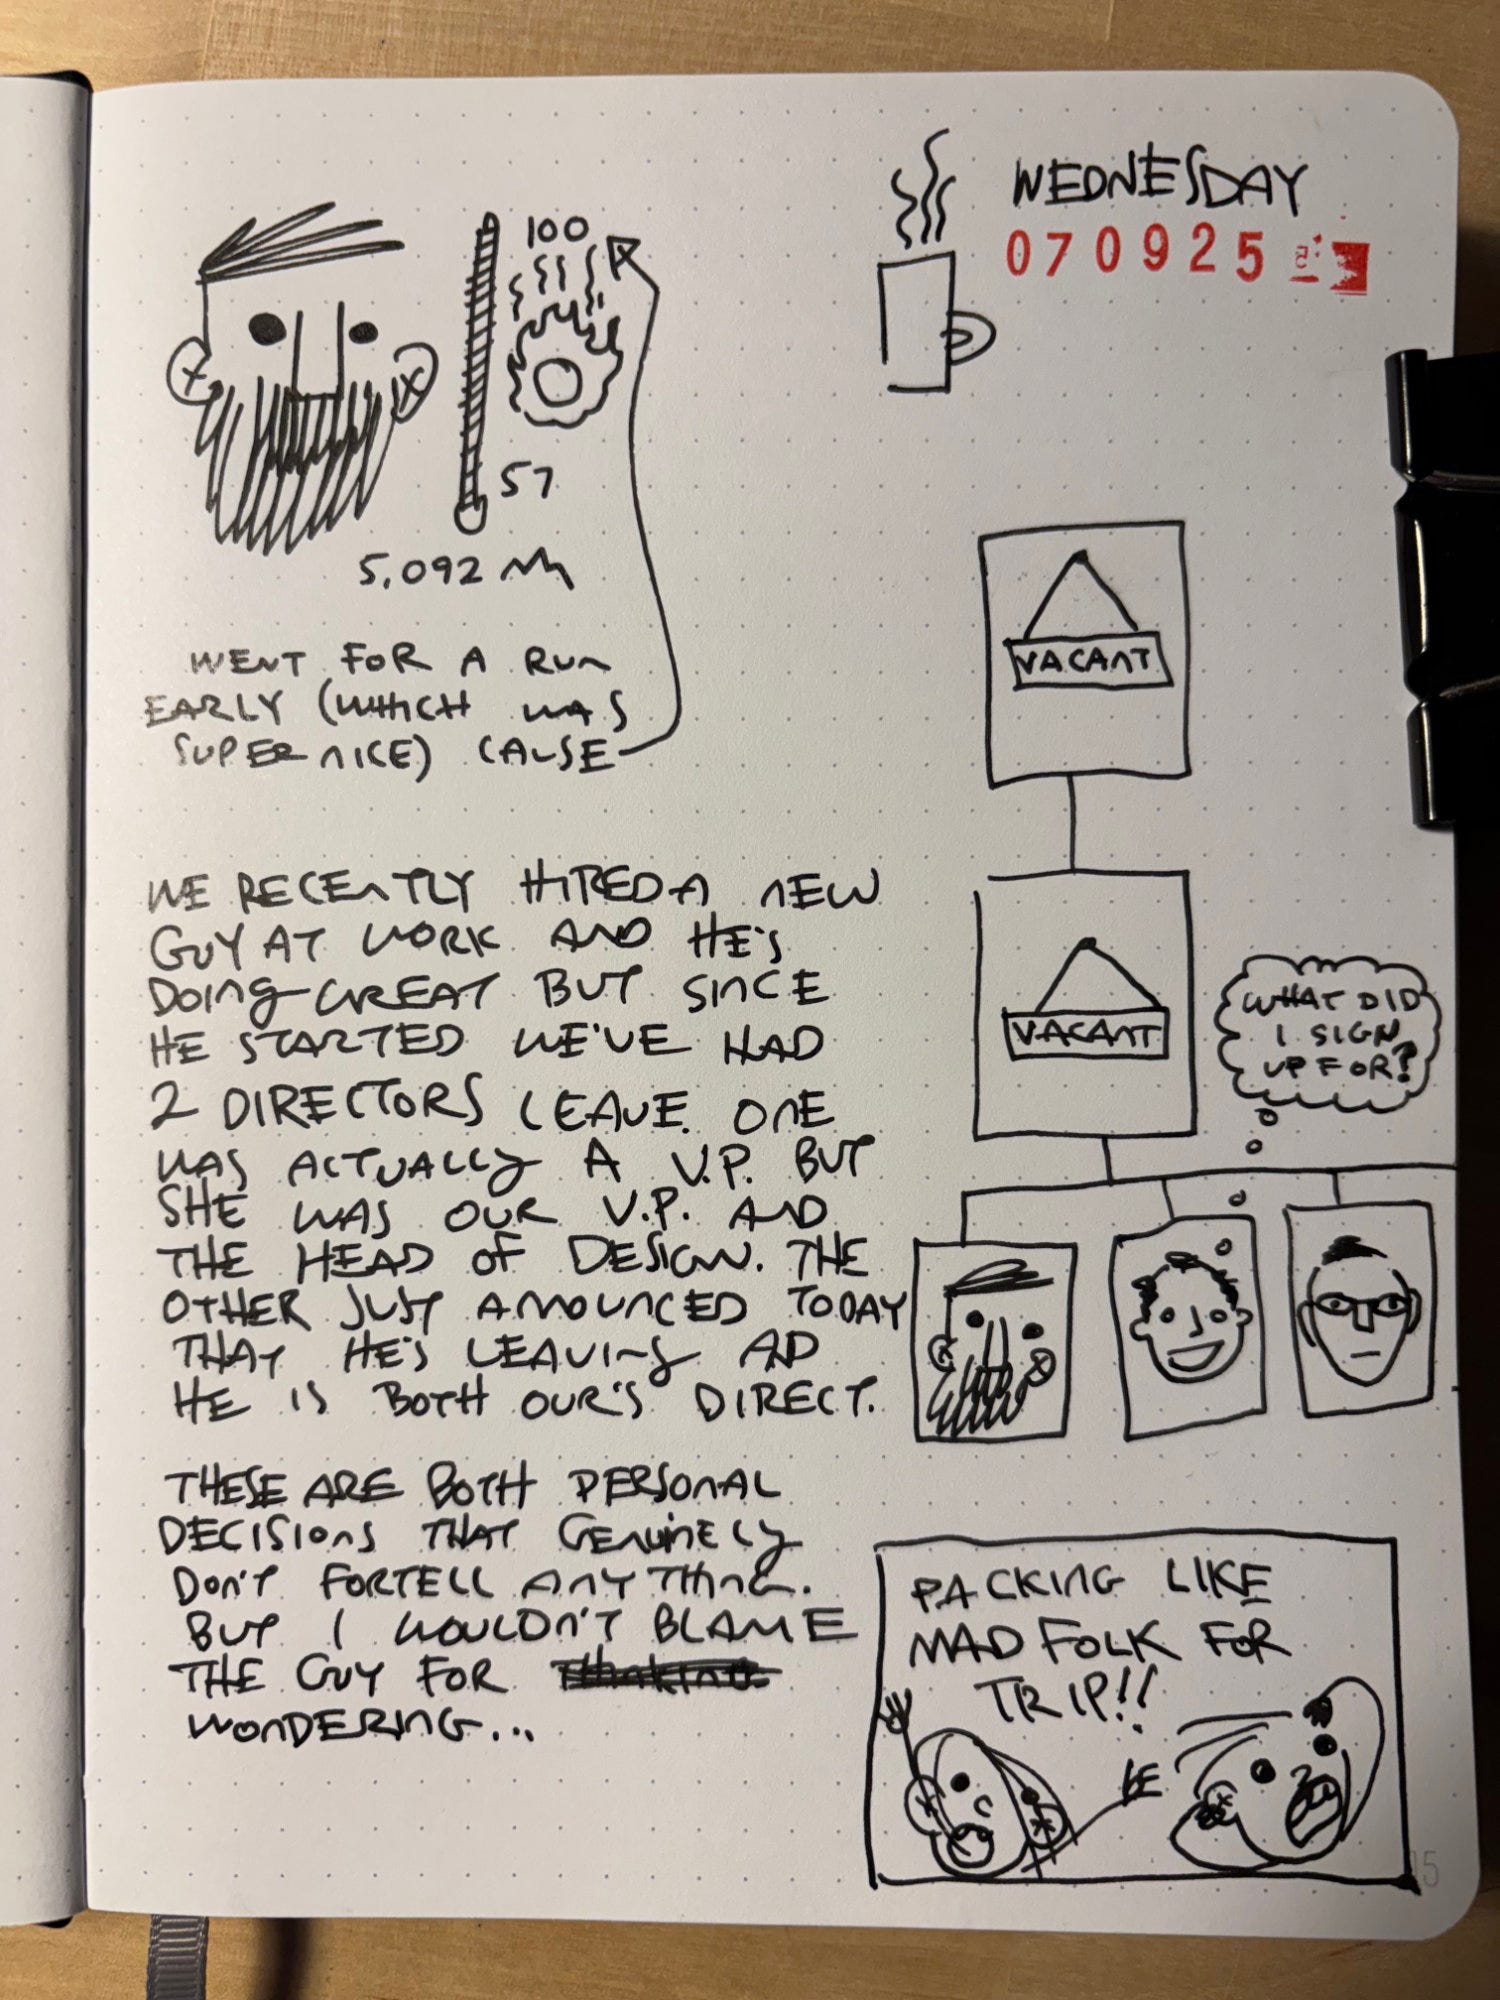 WEDNESDAY
070925
100
57
5,092
WENT FOR A RUN
EARLY (WHICH WAS
SUPER NICE) CAUSE
WE RECENTLY HIRED A NEW
GUY AT WORK AND HE'S
DOING GREAT BUT SINCE
HE STARTED WE'VE HAD
2 DIRECTORS LEAVE. ONE
WAS ACTUALLY A V.P. BUT
SHE WAS OUR V.P. AND
THE HEAD OF DESIGN. THE
OTHER JUST ANNOUNCED TODAY
THAT HE'S LEAVING AD
HE IS BOTH OUR'S DIRECT.
THESE ARE BOTH PERSONAL
DECISIONS THAT GENUINELY
DON'T FORTELL ANYTHING.
BUT I WOULDN'T BLAME
THE GUY FOR
WONDERING...
VACANT
VACANT
WHAT DID
I SIGN
UP FOR?
PACKING LIKE
MAD FOLK FOR
TRIP!!